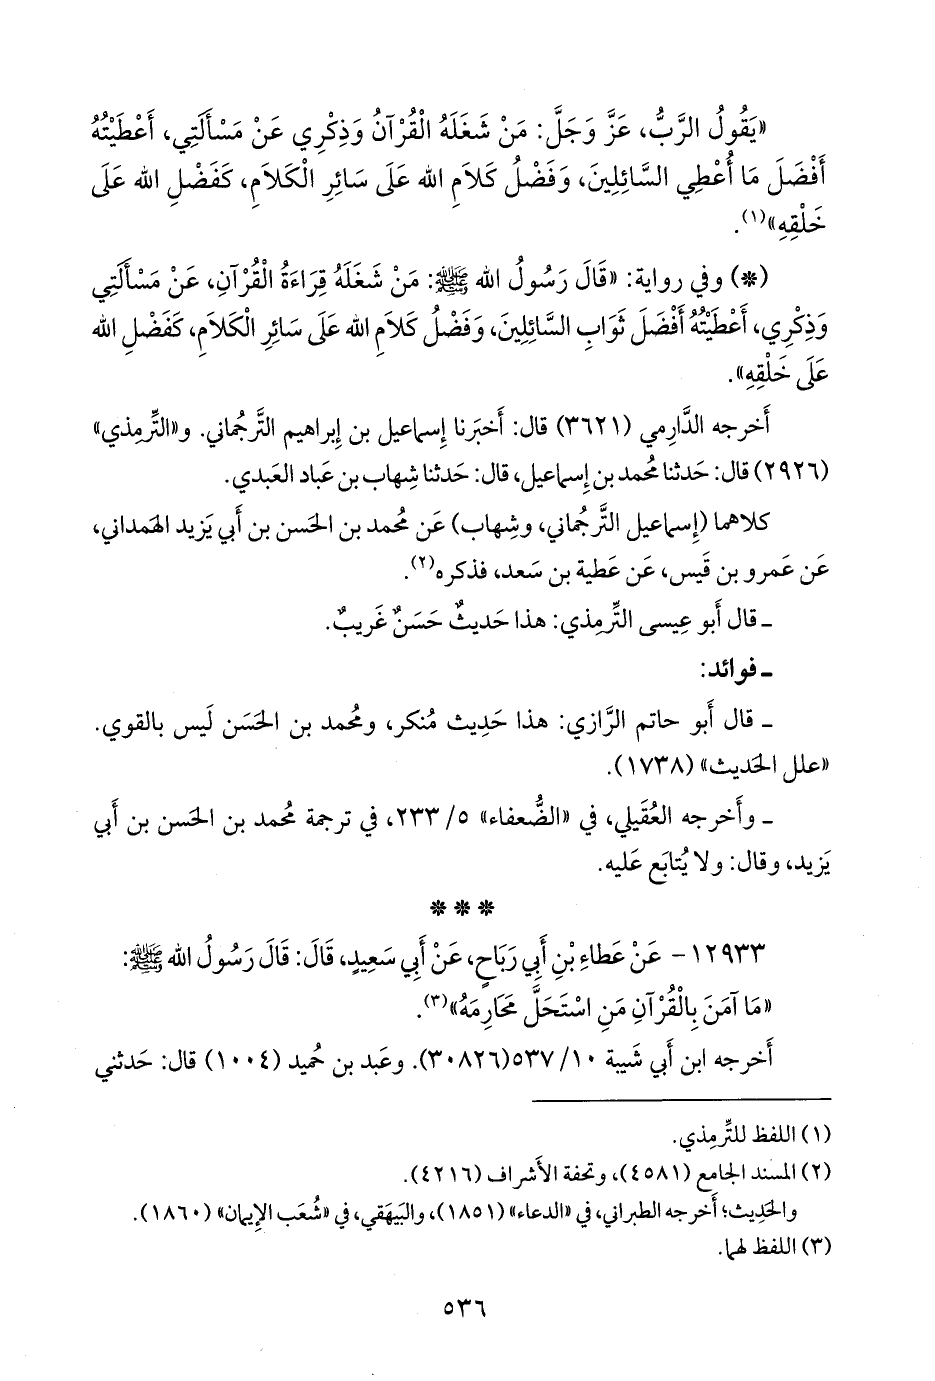 «يَقُولُ الرَّبُّ، عَزَّ وَجَلَّ: مَنْ شَغَلَهُ الْقُرْآنُ وَذِكْرِي عَنْ مَسْأَلَتِي، أَعْطَيْتُهُ
أَفْضَلَ مَا أُعْطِي السَّائِلِينَ، وَفَضْلُ كَلاَمِ الله عَلَى سَائِرِ الْكَلاَمِ، كَفَضْلِ الله عَلَى
خَلْقِهِ»(١).
(*) وفي رواية: «قَالَ رَسُولُ الله ﷺ: مَنْ شَغَلَهُ قِرَاءَةُ الْقُرْآنِ، عَنْ مَسْأَلَتِي
وَذِكْرِي، أَعْطَيْتُهُ أَفْضَلَ ثَوَابِ السَّائِلِينَ، وَفَضْلُ كَلاَمِ الله عَلَى سَائِرِ الْكَلاَمِ، كَفَضْلِ الله
عَلَى خَلْقِهِ».
أَخرجه الدَّارِمي (٣٦٢١) قال: أَخبَرنا إِسماعيل بن إِبراهيم التَّرجُماني. و«التِّرمِذي»
(٢٩٢٦) قال: حَدثنا مُحمد بن إِسماعيل، قال: حَدثنا شِهاب بن عَباد العَبدي.
كلاهما (إِسماعيل التَّرجُماني، وشِهاب) عَن مُحمد بن الحَسن بن أَبي يَزيد الهَمداني،
عَن عَمرو بن قَيس، عَن عَطية بن سَعد، فذكره(٢).
ـ قال أَبو عِيسى التِّرمِذي: هذا حَديثٌ حَسَنٌ غَريبٌ.
ـ فوائد:
ـ قال أَبو حاتم الرَّازي: هذا حَدِيث مُنكر، ومُحمد بن الحَسَن لَيس بالقوي.
«علل الحَديث» (١٧٣٨).
ـ وأَخرجه العُقَيلي، في «الضُّعفاء» ٥/ ٢٣٣، في ترجمة مُحمد بن الحَسن بن أَبي
يَزيد، وقال: ولا يُتابَع عَليه.
* * *
١٢٩٣٣ - عَنْ عَطَاءِ بْنِ أَبِي رَبَاحٍ، عَنْ أَبِي سَعِيدٍ، قَالَ: قَالَ رَسُولُ الله ﷺ:
«مَا آمَنَ بِالْقُرْآنِ مَنِ اسْتَحَلَّ مَحَارِمَهُ»(٣).
أَخرجه ابن أَبي شَيبة ١٠/ ٥٣٧(٣٠٨٢٦). وعَبد بن حُميد (١٠٠٤) قال: حَدثني
(١) اللفظ للتِّرمِذي.
(٢) المسند الجامع (٤٥٨١)، وتحفة الأَشراف (٤٢١٦).
والحَدِيث؛ أَخرجه الطبراني، في «الدعاء» (١٨٥١)، والبَيهَقي، في «شُعَب الإِيمان» (١٨٦٠).
(٣) اللفظ لهما.
٥٣٦